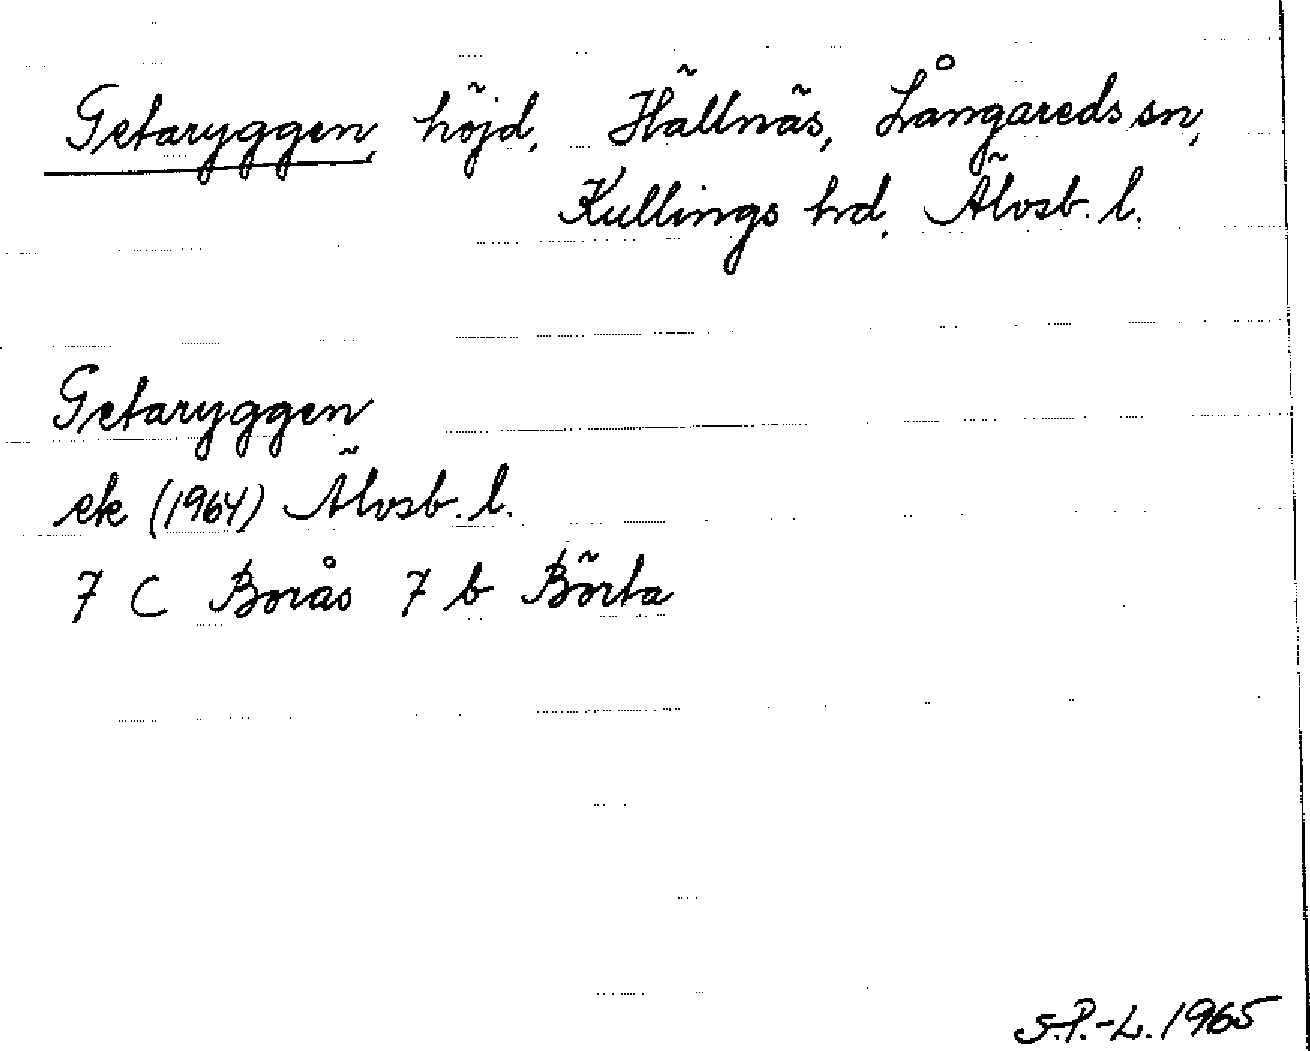 Getaryggen, höjd, Hällnäs, Långareds sn,
Kullings hd, Älvsb. l.
Getaryggen
ek (1964) Älvsb. l.
7 C Borås 7 b Börta
S.P.-L. 1965